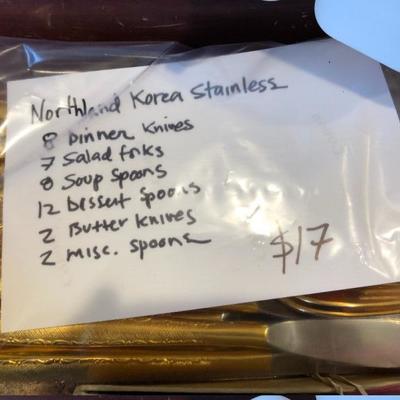 Northland Korea Stainless
8 Dinner Knives
7 Salad forks
8 Soup Spoons
12 Dessert Spoons
2 Butter Knives
2 misc. spoons
$17